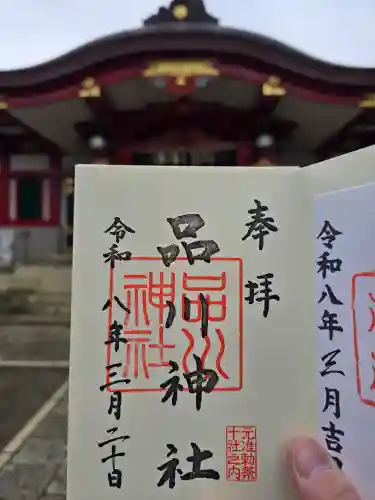 奉拝
品川神社
品川神社
元准勅祭
十社之内
令和八年三月二十日
令和八年三月吉